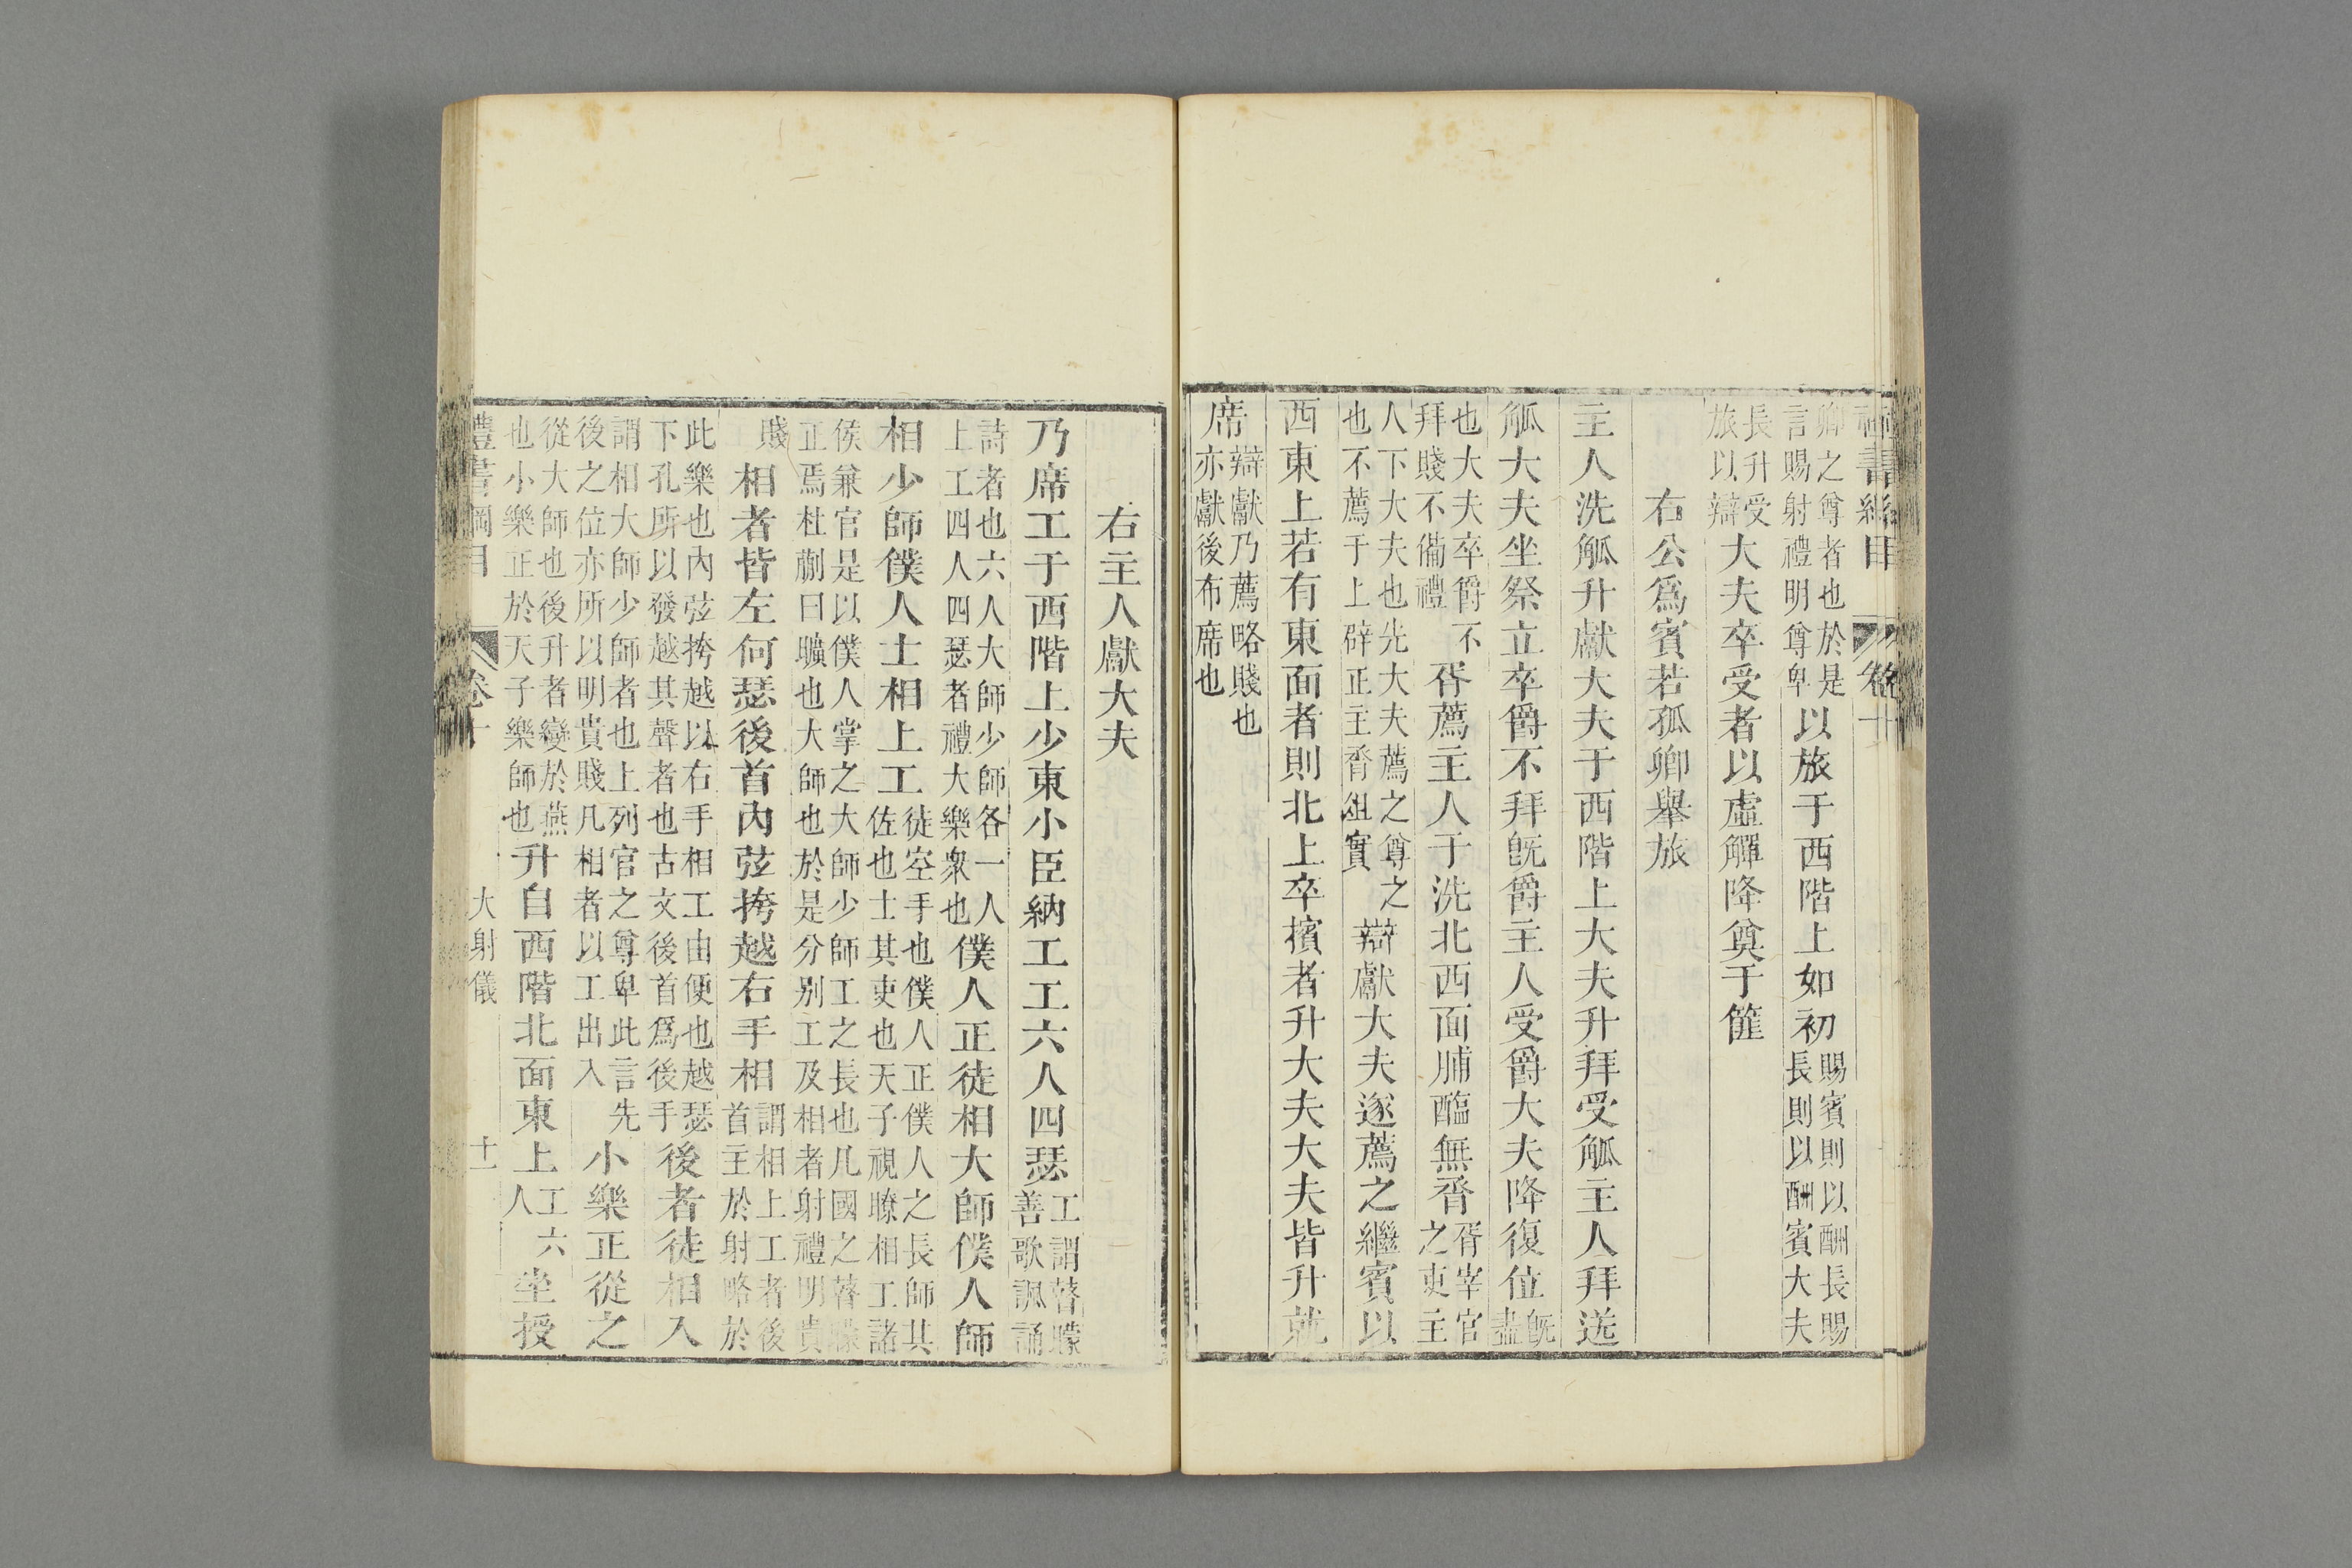 禮書綱目　卷十
卿之尊者也於是言賜射禮明尊卑以旅于西階上如初賜賓則以酬長賜長則以酬賓大夫
長升受旅以辯大夫卒受者以虛觶降奠于篚
右公爲賓若孤卿舉旅
主人洗觚升獻大夫于西階上大夫升拜受觚主人拜送
觚大夫坐祭立卒爵不拜旣爵主人受爵大夫降復位旣盡
也大夫卒爵不拜賤不備禮胥薦主人于洗北西面脯醢無脀胥宰官之吏主
人下大夫也先大夫薦之尊之也不薦于上辟正主脀俎實辯獻大夫遂薦之繼賓以
西東上若有東面者則北上卒擯者升大夫大夫皆升就
席辯獻乃薦略賤也亦獻後布席也
右主人獻大夫
乃席工于西階上少東小臣納工工六人四瑟工謂瞽矇善歌諷誦
詩者也六人大師少師各一人上工四人四瑟者禮大樂衆也僕人正徒相大師僕人師
相少師僕人士相上工徒空手也僕人正僕人之長師其佐也士其吏也天子視瞭相工諸
侯兼官是以僕人掌之大師少師工之長也凡國之瞽矇正焉杜蒯曰曠也大師也於是分别工及相者射禮明貴
賤相者皆左何瑟後首內弦挎越右手相謂相上工者後首主於射略於
此樂也內弦挎越以右手相工由便也越瑟下孔所以發越其聲者也古文後首爲後手後者徒相入
謂相大師少師者也上列官之尊卑此言先後之位亦所以明貴賤凡相者以工出入小樂正從之
從大師也後升者變於燕也小樂正於天子樂師也升自西階北面東上工六人坐授
禮書綱目　卷十　大射儀　十一